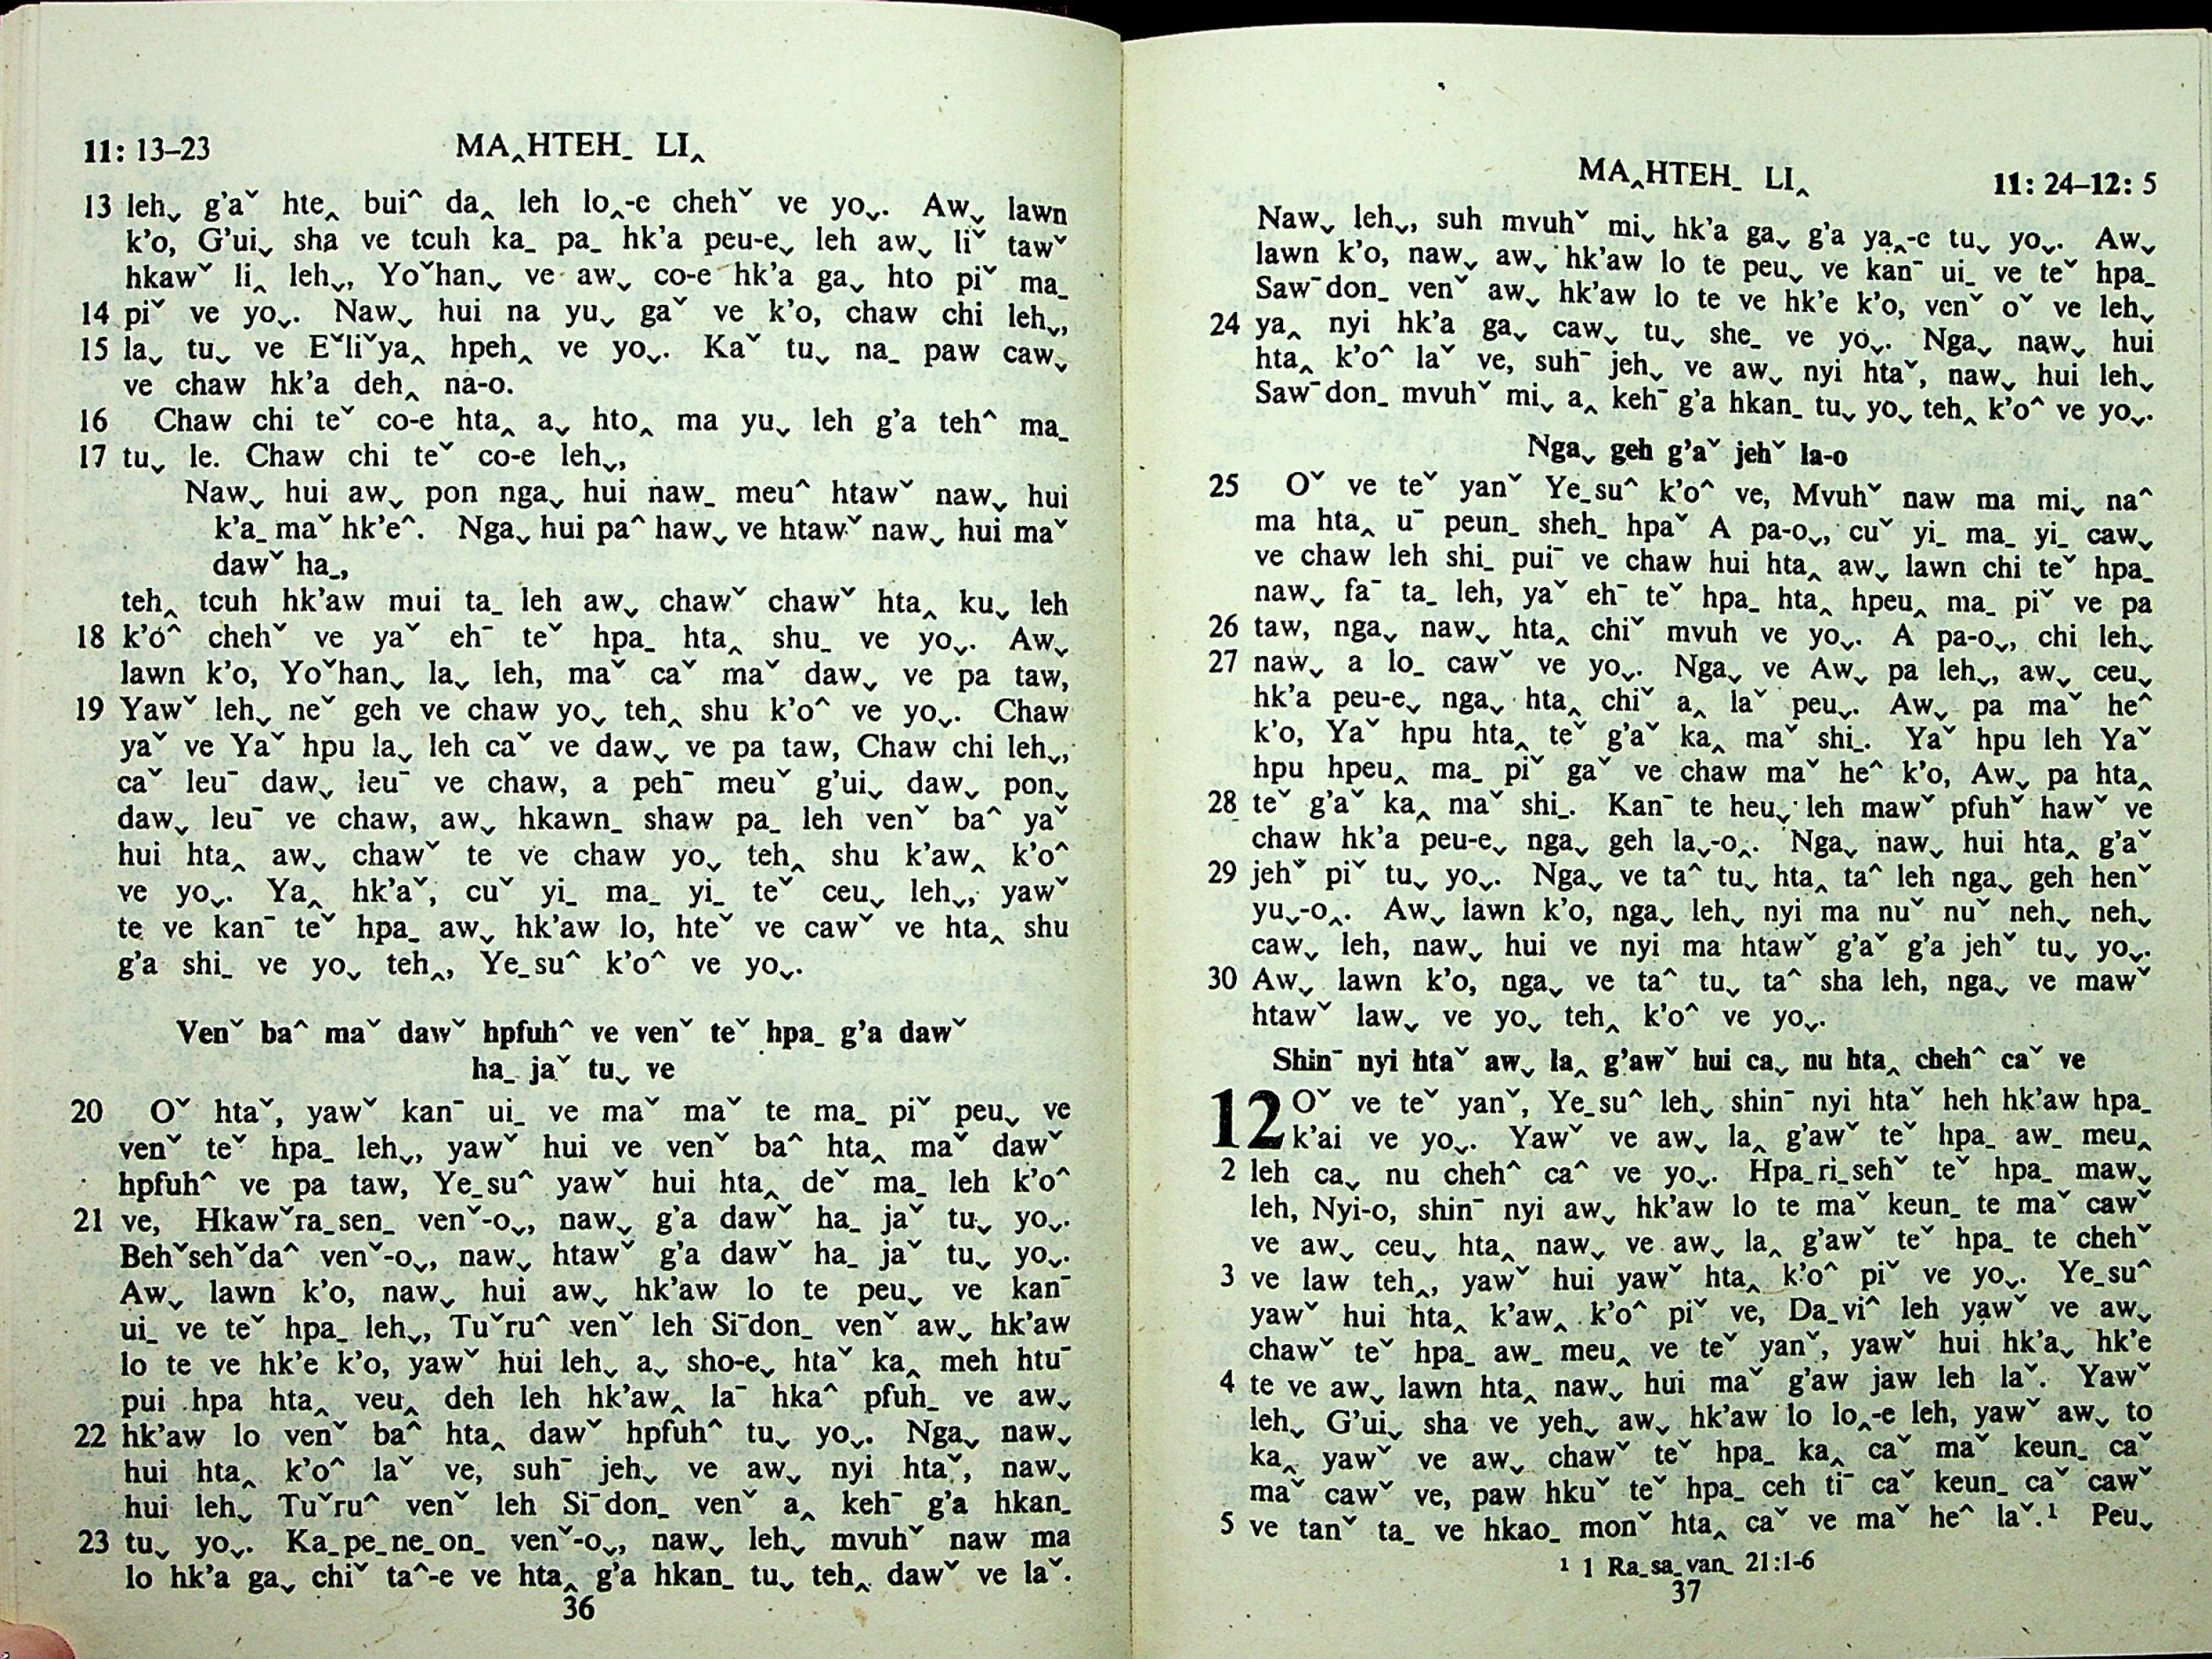 11: 13–23 MAꞈHTEH_ LIꞈ
13 leh˯ g'aˇ hteꞈ buiˆ daꞈ leh loꞈ-e chehˇ ve yo˯. Aw˯ lawn
k'o, G'ui˯ sha ve tcuh ka_ pa_ hk'a peu-e˯ leh aw˯ liˇ tawˇ
hkawˇ liꞈ leh˯, Yoˇhan˯ ve aw˯ co-e hk'a ga˯ hto piˇ ma_
14 piˇ ve yo˯. Naw˯ hui na yu˯ gaˇ ve k'o, chaw chi leh˯,
15 la˯ tu˯ ve Eˇliˇyaꞈ hpehꞈ ve yo˯. Kaˇ tu˯ na_ paw caw˯
ve chaw hk'a dehꞈ na-o.
16 Chaw chi teˇ co-e htaꞈ a˯ htoꞈ ma yu˯ leh g'a tehˆ ma_
17 tu˯ le. Chaw chi teˇ co-e leh˯,
Naw˯ hui aw˯ pon nga˯ hui naw_ meuˆ htawˇ naw˯ hui
k'a_ maˇ hk'eˆ. Nga˯ hui paˆ haw˯ ve htawˇ naw˯ hui maˇ
dawˇ ha_,
tehꞈ tcuh hk'aw mui ta_ leh aw˯ chawˇ chawˇ htaꞈ ku˯ leh
18 k'oˆ chehˇ ve yaˇ ehˉ teˇ hpa_ htaꞈ shu_ ve yo˯. Aw˯
lawn k'o, Yoˇhan˯ la˯ leh, maˇ caˇ maˇ daw˯ ve pa taw,
19 Yawˇ leh˯ neˇ geh ve chaw yo˯ tehꞈ shu k'oˆ ve yo˯. Chaw
yaˇ ve Yaˇ hpu la˯ leh caˇ ve daw˯ ve pa taw, Chaw chi leh˯,
caˇ leuˉ daw˯ leuˉ ve chaw, a pehˉ meuˇ g'ui˯ daw˯ pon˯
daw˯ leuˉ ve chaw, aw˯ hkawn_ shaw pa_ leh venˇ baˆ yaˇ
hui htaꞈ aw˯ chawˇ te ve chaw yo˯ tehꞈ shu k'awꞈ k'oˆ
ve yo˯. Yaꞈ hk'aˇ, cuˇ yi_ ma_ yi_ teˇ ceu˯ leh˯, yawˇ
te ve kanˉ teˇ hpa_ aw˯ hk'aw lo, hteˇ ve cawˇ ve htaꞈ shu
g'a shi_ ve yo˯ tehꞈ, Ye_suˆ k'oˆ ve yo˯.
Venˇ baˆ maˇ dawˇ hpfuhˆ ve venˇ teˇ hpa_ g'a dawˇ
ha_ jaˇ tu˯ ve
20 Oˇ htaˇ, yawˇ kanˉ ui_ ve maˇ maˇ te ma_ piˇ peu˯ ve
venˇ teˇ hpa_ leh˯, yawˇ hui ve venˇ baˆ htaꞈ maˇ dawˇ
hpfuhˆ ve pa taw, Ye_suˆ yawˇ hui htaꞈ deˇ ma_ leh k'oˆ
21 ve, Hkawˇra_sen_ venˇ-o˯, naw˯ g'a dawˇ ha_ jaˇ tu˯ yo˯.
Behˇsehˇdaˆ venˇ-o˯, naw˯ htawˇ g'a dawˇ ha_ jaˇ tu˯ yo˯.
Aw˯ lawn k'o, naw˯ hui aw˯ hk'aw lo te peu˯ ve kanˉ
ui_ ve teˇ hpa_ leh˯, Tuˇruˆ venˇ leh Siˉdon_ venˇ aw˯ hk'aw
lo te ve hk'e k'o, yawˇ hui leh˯ a˯ sho-e˯ htaˇ kaꞈ meh htuˉ
pui hpa htaꞈ veuꞈ deh leh hk'awꞈ laˉ hkaˆ pfuh_ ve aw˯
22 hk'aw lo venˇ baˆ htaꞈ dawˇ hpfuhˆ tu˯ yo˯. Nga˯ naw˯
hui htaꞈ k'oˆ laˇ ve, suhˉ jeh˯ ve aw˯ nyi htaˇ, naw˯
hui leh˯ Tuˇruˆ venˇ leh Siˉdon_ venˇ aꞈ kehˉ g'a hkan_
23 tu˯ yo˯. Ka_pe_ne_on_ venˇ-o˯, naw˯ leh˯ mvuhˇ naw ma
lo hk'a ga˯ chiˇ taˆ-e ve htaꞈ g'a hkan_ tu˯ tehꞈ dawˇ ve laˇ.
36
MAꞈHTEH_ LIꞈ 11: 24–12: 5
Naw˯ leh˯, suh mvuhˇ mi˯ hk'a ga˯ g'a yaꞈ-e tu˯ yo˯. Aw˯
lawn k'o, naw˯ aw˯ hk'aw lo te peu˯ ve kanˉ ui_ ve teˇ hpa_
Sawˉdon_ venˇ aw˯ hk'aw lo te ve hk'e k'o, venˇ oˇ ve leh˯
24 yaꞈ nyi hk'a ga˯ caw˯ tu˯ she_ ve yo˯. Nga˯ naw˯ hui
htaꞈ k'oˆ laˇ ve, suhˉ jeh˯ ve aw˯ nyi htaˇ, naw˯ hui leh˯
Sawˉdon_ mvuhˇ mi˯ aꞈ kehˉ g'a hkan_ tu˯ yo˯ tehꞈ k'oˆ ve yo˯.
Nga˯ geh g'aˇ jehˇ la-o
25 Oˇ ve teˇ yanˇ Ye_suˆ k'oˆ ve, Mvuhˇ naw ma mi˯ naˆ
ma htaꞈ uˉ peun_ sheh_ hpaˇ A pa-o˯, cuˇ yi_ ma_ yi_ caw˯
ve chaw leh shi_ puiˉ ve chaw hui htaꞈ aw˯ lawn chi teˇ hpa_
naw˯ faˉ ta_ leh, yaˇ ehˉ teˇ hpa_ htaꞈ hpeuꞈ ma_ piˇ ve pa
26 taw, nga˯ naw˯ htaꞈ chiˇ mvuh ve yo˯. A pa-o˯, chi leh˯
27 naw˯ a lo_ cawˇ ve yo˯. Nga˯ ve Aw˯ pa leh˯, aw˯ ceu˯
hk'a peu-e˯ nga˯ htaꞈ chiˇ aꞈ laˇ peu˯. Aw˯ pa maˇ heˆ
k'o, Yaˇ hpu htaꞈ teˇ g'aˇ kaꞈ maˇ shi_. Yaˇ hpu leh Yaˇ
hpu hpeuꞈ ma_ piˇ gaˇ ve chaw maˇ heˆ k'o, Aw˯ pa htaꞈ
28 teˇ g'aˇ kaꞈ maˇ shi_. Kanˉ te heu˯ leh mawˇ pfuhˇ hawˇ ve
chaw hk'a peu-e˯ nga˯ geh la˯-oꞈ. Nga˯ naw˯ hui htaꞈ g'aˇ
29 jehˇ piˇ tu˯ yo˯. Nga˯ ve taˆ tu˯ htaꞈ taˆ leh nga˯ geh henˇ
yu˯-oꞈ. Aw˯ lawn k'o, nga˯ leh˯ nyi ma nuˇ nuˇ neh˯ neh˯
caw˯ leh, naw˯ hui ve nyi ma htawˇ g'aˇ g'a jehˇ tu˯ yo˯.
30 Aw˯ lawn k'o, nga˯ ve taˆ tu˯ taˆ sha leh, nga˯ ve mawˇ
htawˇ law˯ ve yo˯ tehꞈ k'oˆ ve yo˯.
Shinˉ nyi htaˇ aw˯ laꞈ g'awˇ hui ca˯ nu htaꞈ chehˆ caˇ ve
12 Oˇ ve teˇ yanˇ, Ye_suˆ leh˯ shinˉ nyi htaˇ heh hk'aw hpa_
k'ai ve yo˯. Yawˇ ve aw˯ laꞈ g'awˇ teˇ hpa_ aw_ meuꞈ
2 leh ca˯ nu chehˆ caˆ ve yo˯. Hpa_ri_sehˇ teˇ hpa_ maw˯
leh, Nyi-o, shinˉ nyi aw˯ hk'aw lo te maˇ keun_ te maˇ cawˇ
ve aw˯ ceu˯ htaꞈ naw˯ ve aw˯ laꞈ g'awˇ teˇ hpa_ te chehˇ
3 ve law tehꞈ, yawˇ hui yawˇ htaꞈ k'oˆ piˇ ve yo˯. Ye_suˆ
yawˇ hui htaꞈ k'awꞈ k'oˆ piˇ ve, Da_viˆ leh yawˇ ve aw˯
chawˇ teˇ hpa_ aw_ meuꞈ ve teˇ yanˇ, yawˇ hui hk'a˯ hk'e
4 te ve aw˯ lawn htaꞈ naw˯ hui maˇ g'aw jaw leh laˇ. Yawˇ
leh˯ G'ui˯ sha ve yeh˯ aw˯ hk'aw lo loꞈ-e leh, yawˇ aw˯ to
kaꞈ yawˇ ve aw˯ chawˇ teˇ hpa_ kaꞈ caˇ maˇ keun_ caˇ
maˇ cawˇ ve, paw hkuˇ teˇ hpa_ ceh tiˉ caˇ keun_ caˇ cawˇ
5 ve tanˇ ta_ ve hkao_ monˇ htaꞈ caˇ ve maˇ heˆ laˇ.¹ Peu˯
¹ 1 Ra_sa_van_ 21:1-6
37